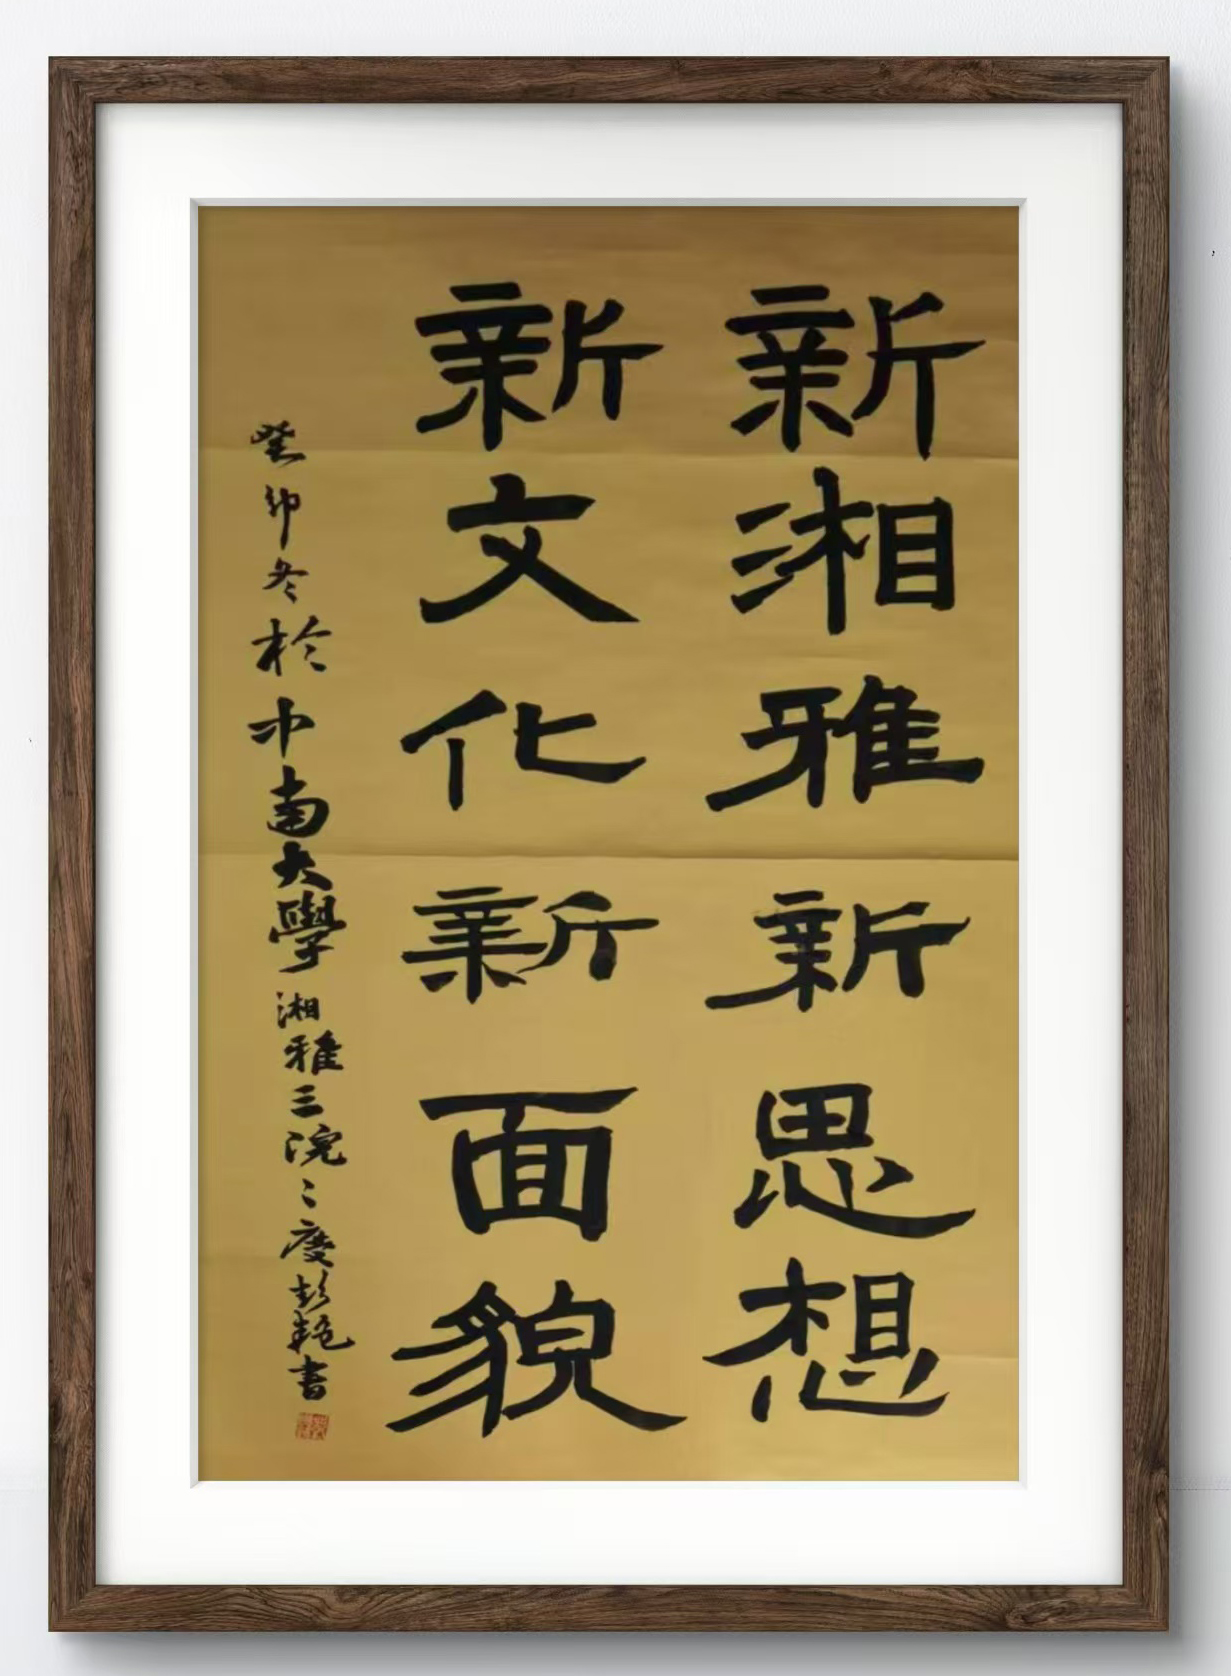 新湘雅新思想
新文化新面貌
癸卯冬於中南大學湘雅三院二度彭艳書